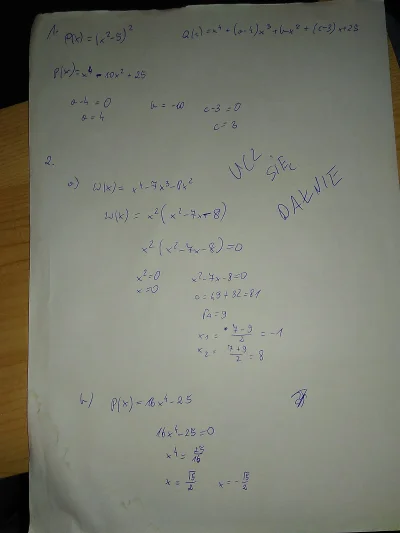 1. P(x) = (x²-5)²     Q(x) = x⁴ + (a-4)x³ + bx² + (c-3)x + 25
P(x) = x⁴ - 10x² + 25
a-4 = 0     b = -10     c-3 = 0
a = 4     c = 3
2.
UCZ
SIĘ
DAKNIE
a) W(x) = x⁴-7x³-8x²
W(x) = x²(x²-7x-8)
x²(x²-7x-8) = 0
x² = 0     x²-7x-8 = 0
x = 0     Δ = 49 + 32 = 81
√Δ = 9
x₁ = (7-9)/2 = -1
x₂ = (7+9)/2 = 8
b) P(x) = 16x⁴-25
16x⁴-25 = 0
x⁴ = 25/16
x = √5/2     x = -√5/2